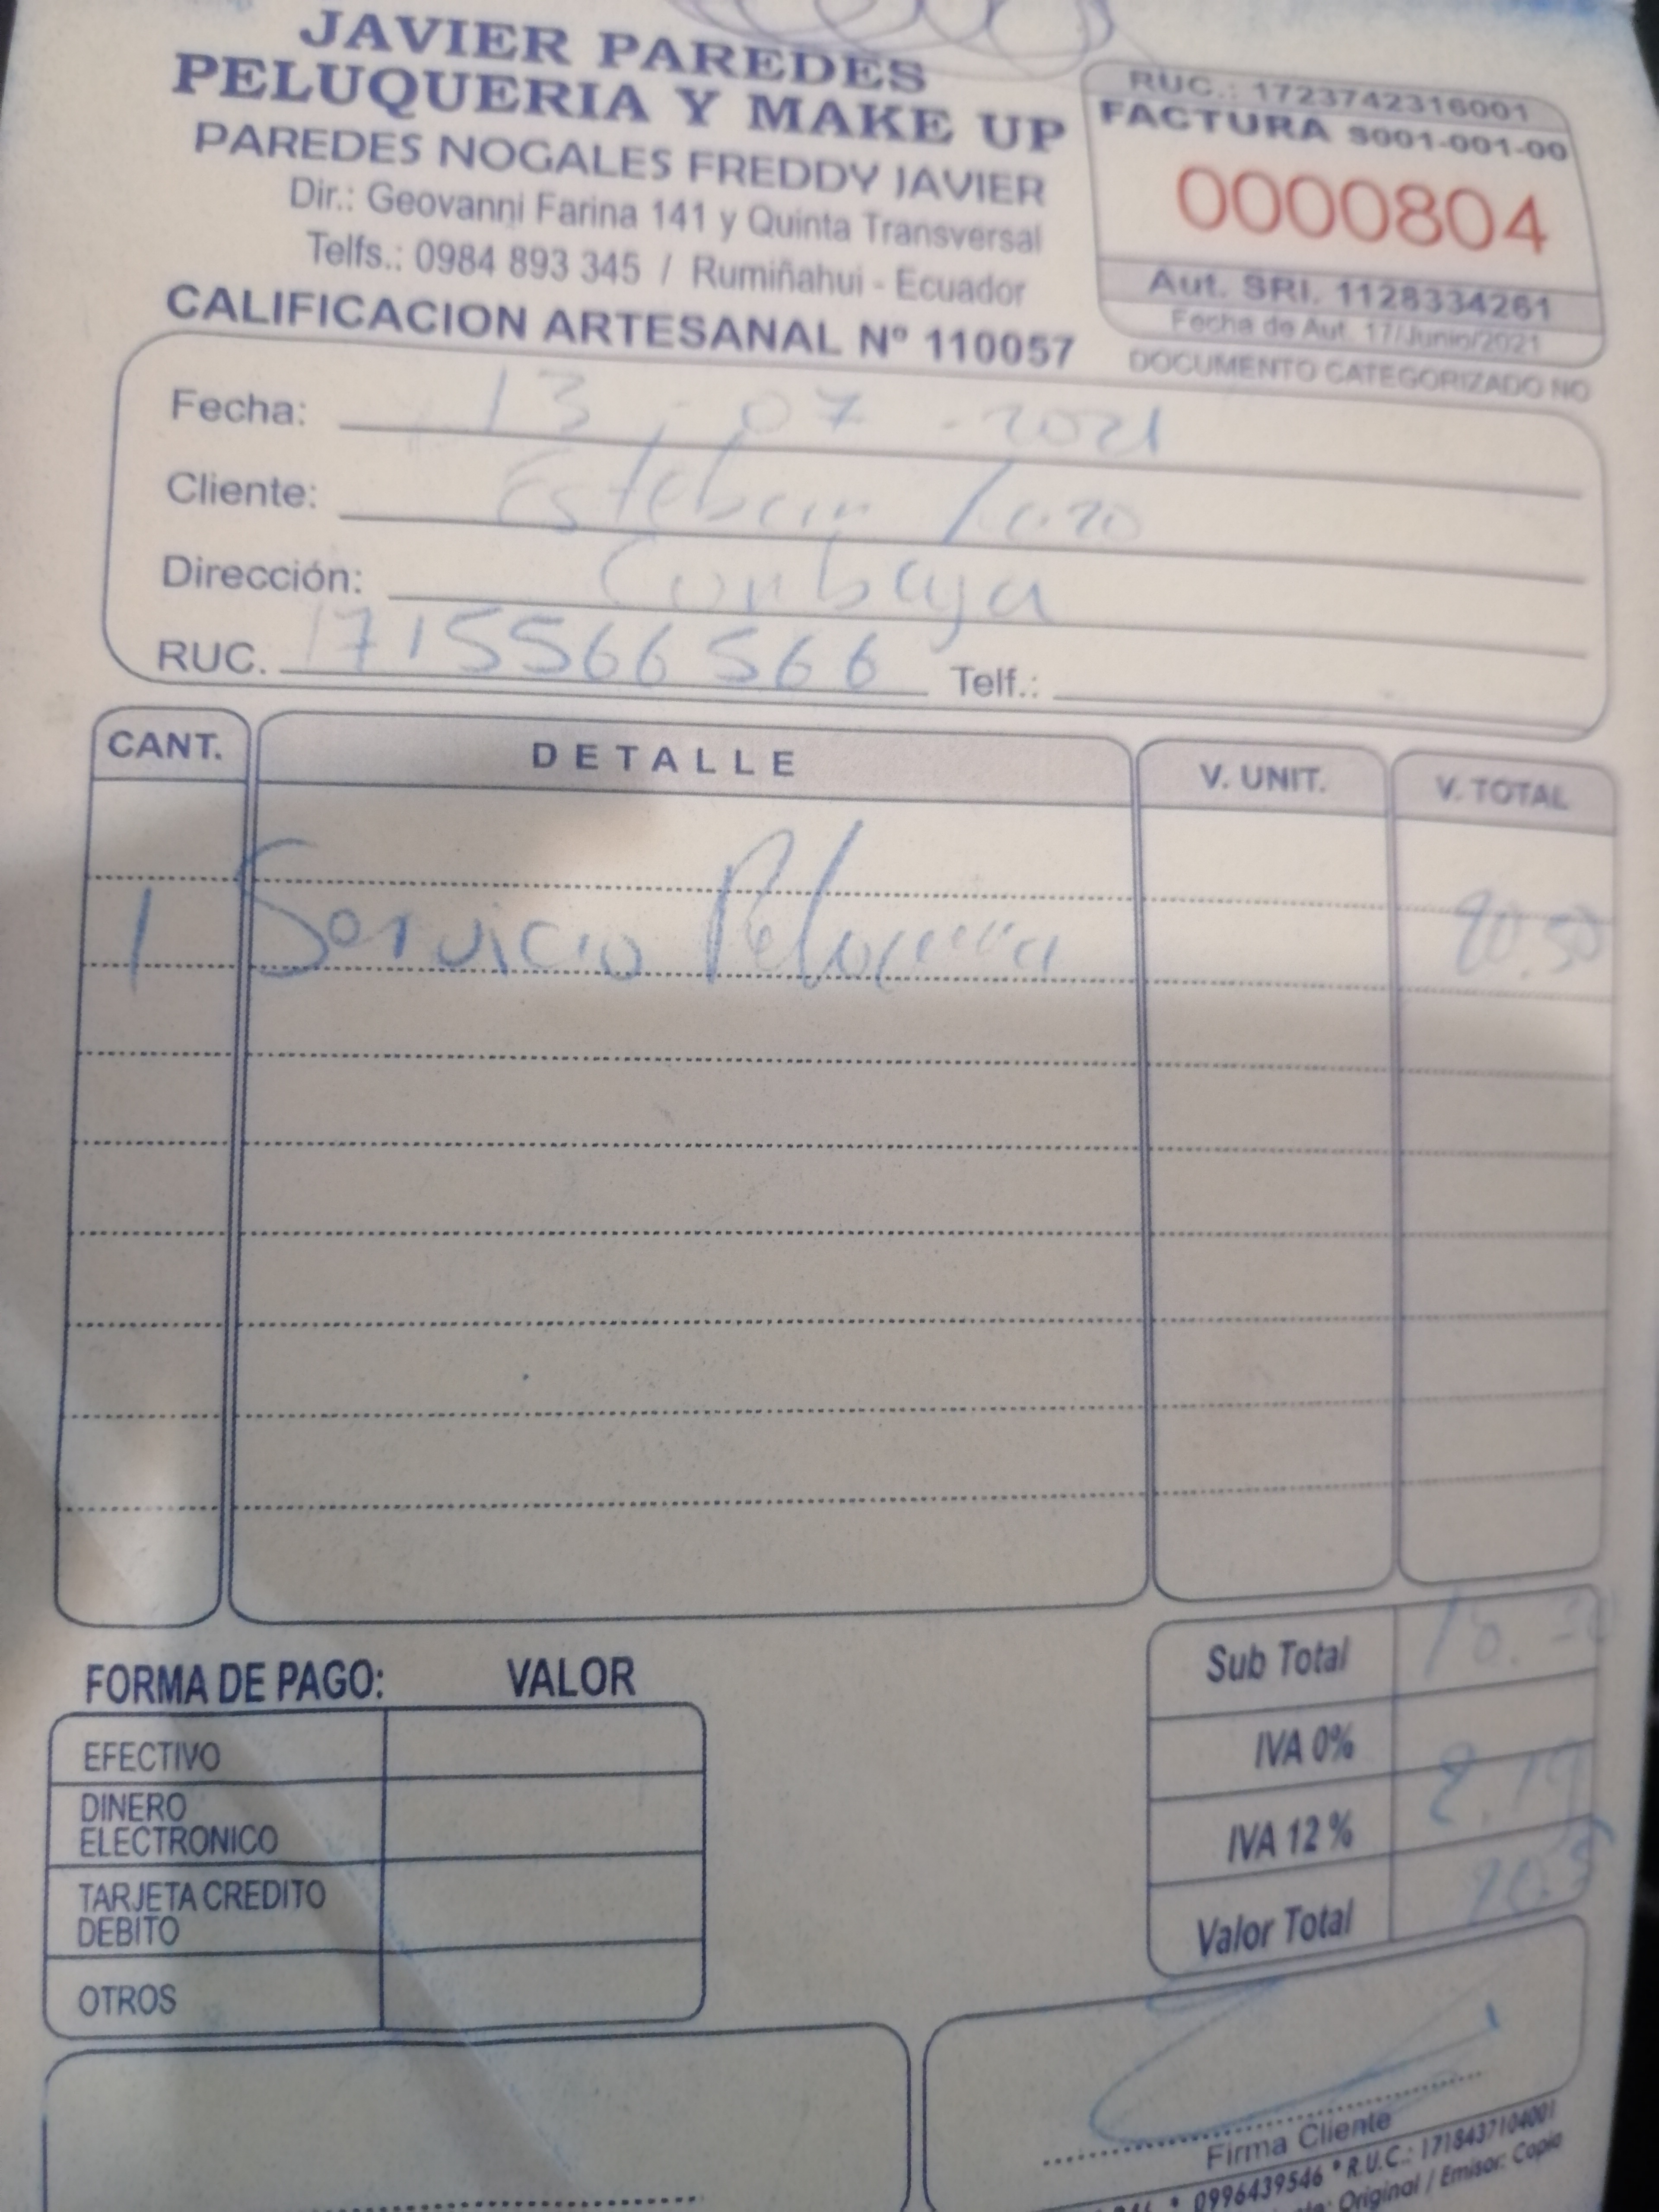 JAVIER PAREDES
PELUQUERIA Y MAKE UP
PAREDES NOGALES FREDDY JAVIER
Dir.: Geovanni Farina 141 y Quinta Transversal
Telfs.: 0984 893 345 / Rumiñahui - Ecuador
CALIFICACION ARTESANAL Nº 110057
RUC.: 1723742316001
FACTURA S001-001-00
0000804
Aut. SRI. 1128334261
Fecha de Aut. 17/Junio/2021
DOCUMENTO CATEGORIZADO NO
Fecha: 13-07-2021
Cliente: Esteban
Dirección: Cumbaya
RUC. 1715566566 Telf.:
CANT. DETALLE V. UNIT. V. TOTAL
1 Servicio 20.50
FORMA DE PAGO: VALOR
EFECTIVO
DINERO
ELECTRONICO
TARJETA CREDITO
DEBITO
OTROS
Sub Total
IVA 0%
IVA 12%
Valor Total
Firma Cliente
0996439546 * R.U.C.: 1718437104001
Original / Emisor: Copia